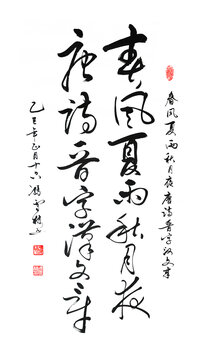 春风夏雨秋月夜
唐诗晋字汉文章
春风夏雨秋月夜唐诗晋字汉文章
乙巳年正月十六